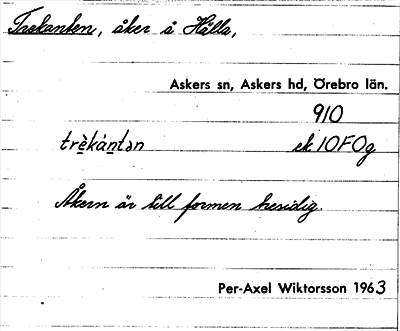 Trekanten, åker å Hälla,
Askers sn, Askers hd, Örebro län.
910
trè̱kàṉtən ek 10F0g
Åkern är till formen tresidig.
Per-Axel Wiktorsson 1963